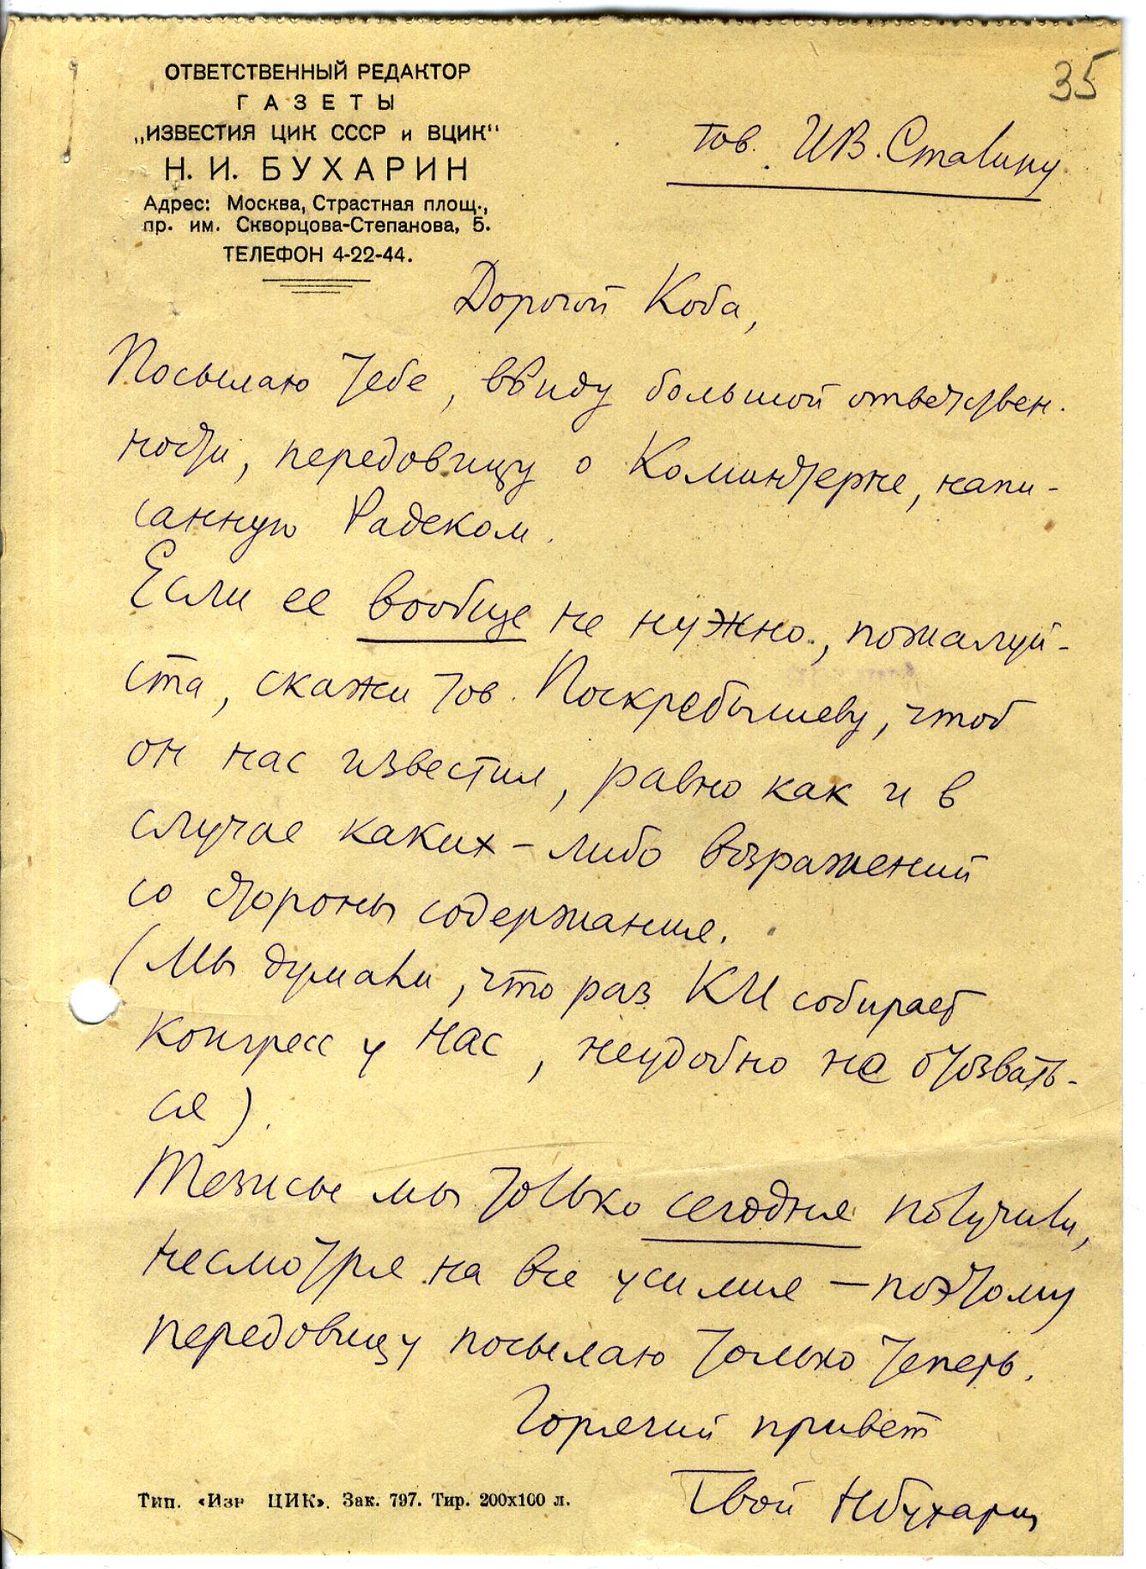 35
ОТВЕТСТВЕННЫЙ РЕДАКТОР
ГАЗЕТЫ
„ИЗВЕСТИЯ ЦИК СССР и ВЦИК“
Н. И. БУХАРИН
Адрес: Москва, Страстная площ.,
пр. им. Скворцова-Степанова, 5.
ТЕЛЕФОН 4-22-44.
тов. И.В. Сталину
Дорогой Коба,
Посылаю тебе, ввиду большой ответствен-
ности, передовицу о Коминтерне, напи-
санную Радеком.
Если ее вообще не нужно, пожалуй-
ста, скажи тов. Поскребышеву, чтоб
он нас известил, равно как и в
случае каких-либо возражений
со стороны содержания.
(Мы думали, что раз КИ собирает
конгресс у нас, неудобно не отозвать-
ся).
Тезисы мы только сегодня получили,
несмотря на все усилия — поэтому
передовицу посылаю только теперь.
Горячий привет
Твой Н Бухарин
Тип. «Изв ЦИК». Зак. 797. Тир. 200х100 л.